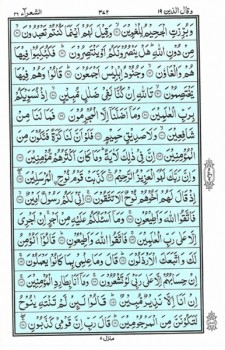 وقال الذين ١٩ ٣٥٢ الشعراء ٢٦
وَبُرِّزَتِ الْجَحِيْمُ لِلْغٰوِيْنَ ۙ وَقِيْلَ لَهُمْ اَيْنَمَا كُنْتُمْ تَعْبُدُوْنَ ۙ
مِنْ دُوْنِ اللّٰهِ هَلْ يَنْصُرُوْنَكُمْ اَوْ يَنْتَصِرُوْنَ ۙ فَكُبْكِبُوْا فِيْهَا
هُمْ وَالْغَاوٗنَ ۙ وَجُنُوْدُ اِبْلِيْسَ اَجْمَعُوْنَ ۙ قَالُوْا وَهُمْ فِيْهَا
يَخْتَصِمُوْنَ ۙ تَاللّٰهِ اِنْ كُنَّا لَفِيْ ضَلٰلٍ مُّبِيْنٍ ۙ اِذْ نُسَوِّيْكُمْ
بِرَبِّ الْعٰلَمِيْنَ وَمَآ اَضَلَّنَآ اِلَّا الْمُجْرِمُوْنَ فَمَا لَنَا مِنْ
شَافِعِيْنَ ۙ وَلَا صَدِيْقٍ حَمِيْمٍ فَلَوْ اَنَّ لَنَا كَرَّةً فَنَكُوْنَ مِنَ
الْمُؤْمِنِيْنَ اِنَّ فِيْ ذٰلِكَ لَاٰيَةً ۗ وَمَا كَانَ اَكْثَرُهُمْ مُّؤْمِنِيْنَ
وَاِنَّ رَبَّكَ لَهُوَ الْعَزِيْزُ الرَّحِيْمُ كَذَّبَتْ قَوْمُ نُوْحِ ۨالْمُرْسَلِيْنَ
اِذْ قَالَ لَهُمْ اَخُوْهُمْ نُوْحٌ اَلَا تَتَّقُوْنَ اِنِّيْ لَكُمْ رَسُوْلٌ اَمِيْنٌ
فَاتَّقُوا اللّٰهَ وَاَطِيْعُوْنِ وَمَآ اَسْـَٔلُكُمْ عَلَيْهِ مِنْ اَجْرٍ اِنْ اَجْرِيَ
اِلَّا عَلٰى رَبِّ الْعٰلَمِيْنَ فَاتَّقُوا اللّٰهَ وَاَطِيْعُوْنِ قَالُوْٓا اَنُؤْمِنُ
لَكَ وَاتَّبَعَكَ الْاَرْذَلُوْنَ قَالَ وَمَا عِلْمِيْ بِمَا كَانُوْا يَعْمَلُوْنَ
اِنْ حِسَابُهُمْ اِلَّا عَلٰى رَبِّيْ لَوْ تَشْعُرُوْنَ وَمَآ اَنَا بِطَارِدِ الْمُؤْمِنِيْنَ
اِنْ اَنَا اِلَّا نَذِيْرٌ مُّبِيْنٌ قَالُوْا لَئِنْ لَّمْ تَنْتَهِ يٰنُوْحُ
لَتَكُوْنَنَّ مِنَ الْمَرْجُوْمِيْنَ قَالَ رَبِّ اِنَّ قَوْمِيْ كَذَّبُوْنِ
منزل ٥